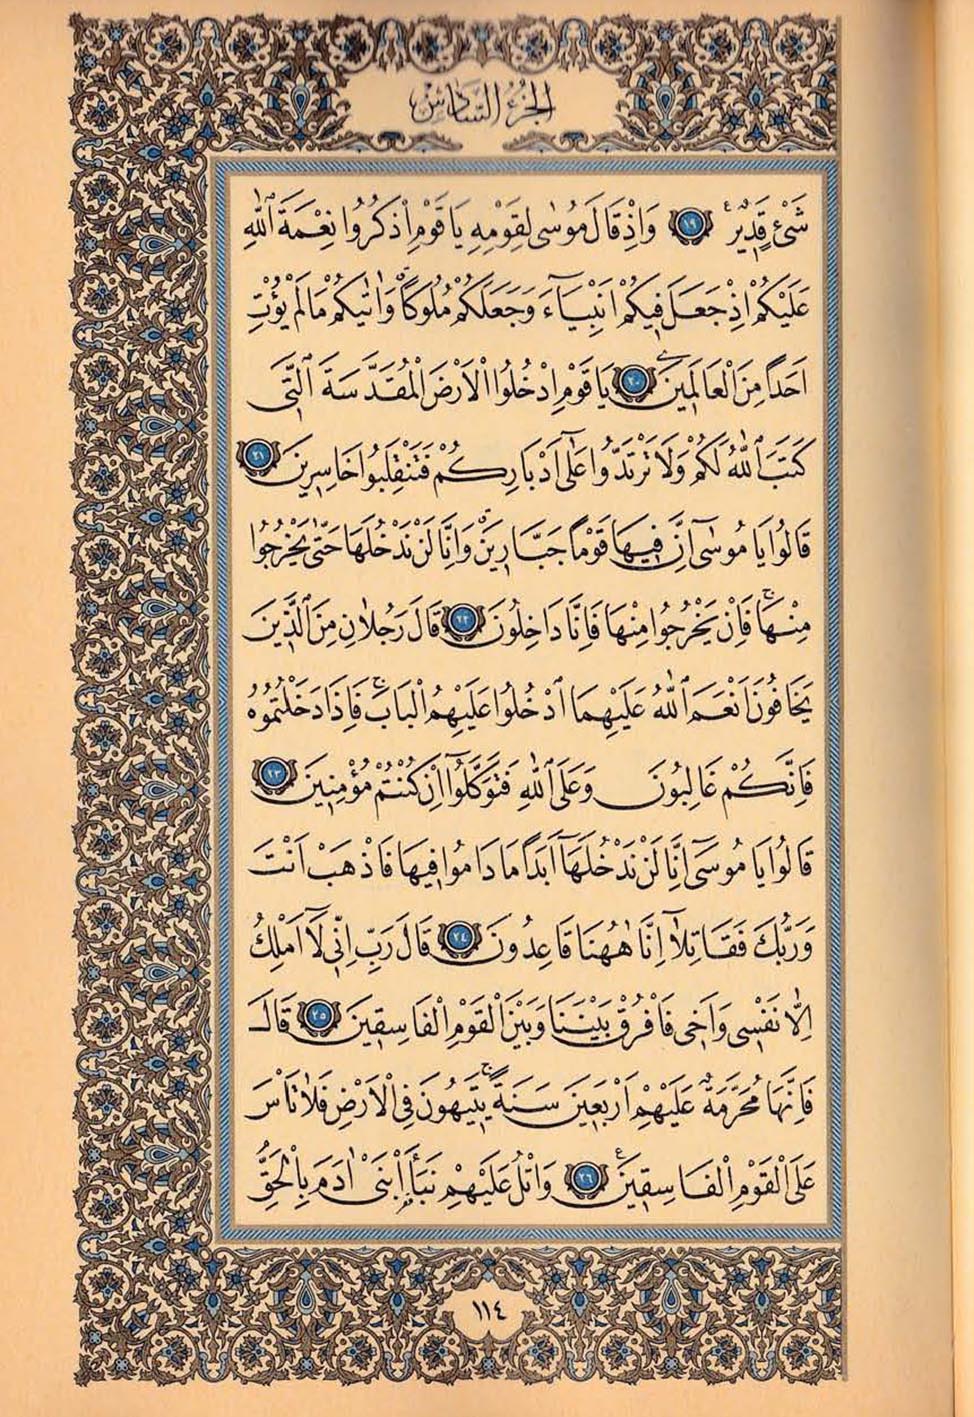 الجزء السادس
شَىْءٍ قَدِيرٌ ﴿١٩﴾ وَاِذْ قَالَ مُوسٰى لِقَوْمِهِ يَا قَوْمِ اذْكُرُوا نِعْمَةَ اللّٰهِ
عَلَيْكُمْ اِذْ جَعَلَ فِيكُمْ اَنْبِيَآءَ وَجَعَلَكُمْ مُلُوكًا وَاٰتٰيكُمْ مَا لَمْ يُؤْتِ
اَحَدًا مِنَ الْعَالَمِينَ ﴿٢٠﴾ يَا قَوْمِ ادْخُلُوا الْاَرْضَ الْمُقَدَّسَةَ الَّتِى
كَتَبَ اللّٰهُ لَكُمْ وَلَا تَرْتَدُّوا عَلٰٓى اَدْبَارِكُمْ فَتَنْقَلِبُوا خَاسِرِينَ ﴿٢١﴾
قَالُوا يَا مُوسٰٓى اِنَّ فِيهَا قَوْمًا جَبَّارِينَ وَاِنَّا لَنْ نَدْخُلَهَا حَتّٰى يَخْرُجُوا
مِنْهَا فَاِنْ يَخْرُجُوا مِنْهَا فَاِنَّا دَاخِلُونَ ﴿٢٢﴾ قَالَ رَجُلَانِ مِنَ الَّذِينَ
يَخَافُونَ اَنْعَمَ اللّٰهُ عَلَيْهِمَا ادْخُلُوا عَلَيْهِمُ الْبَابَ فَاِذَا دَخَلْتُمُوهُ
فَاِنَّكُمْ غَالِبُونَ وَعَلَى اللّٰهِ فَتَوَكَّلُوٓا اِنْ كُنْتُمْ مُؤْمِنِينَ ﴿٢٣﴾
قَالُوا يَا مُوسٰٓى اِنَّا لَنْ نَدْخُلَهَآ اَبَدًا مَا دَامُوا فِيهَا فَاذْهَبْ اَنْتَ
وَرَبُّكَ فَقَاتِلَآ اِنَّا هٰهُنَا قَاعِدُونَ ﴿٢٤﴾ قَالَ رَبِّ اِنِّى لَآ اَمْلِكُ
اِلَّا نَفْسِى وَاَخِى فَافْرُقْ بَيْنَنَا وَبَيْنَ الْقَوْمِ الْفَاسِقِينَ ﴿٢٥﴾ قَالَ
فَاِنَّهَا مُحَرَّمَةٌ عَلَيْهِمْ اَرْبَعِينَ سَنَةً يَتِيهُونَ فِى الْاَرْضِ فَلَا تَاْسَ
عَلَى الْقَوْمِ الْفَاسِقِينَ ﴿٢٦﴾ وَاتْلُ عَلَيْهِمْ نَبَاَ ابْنَىْ اٰدَمَ بِالْحَقِّ
١١٤